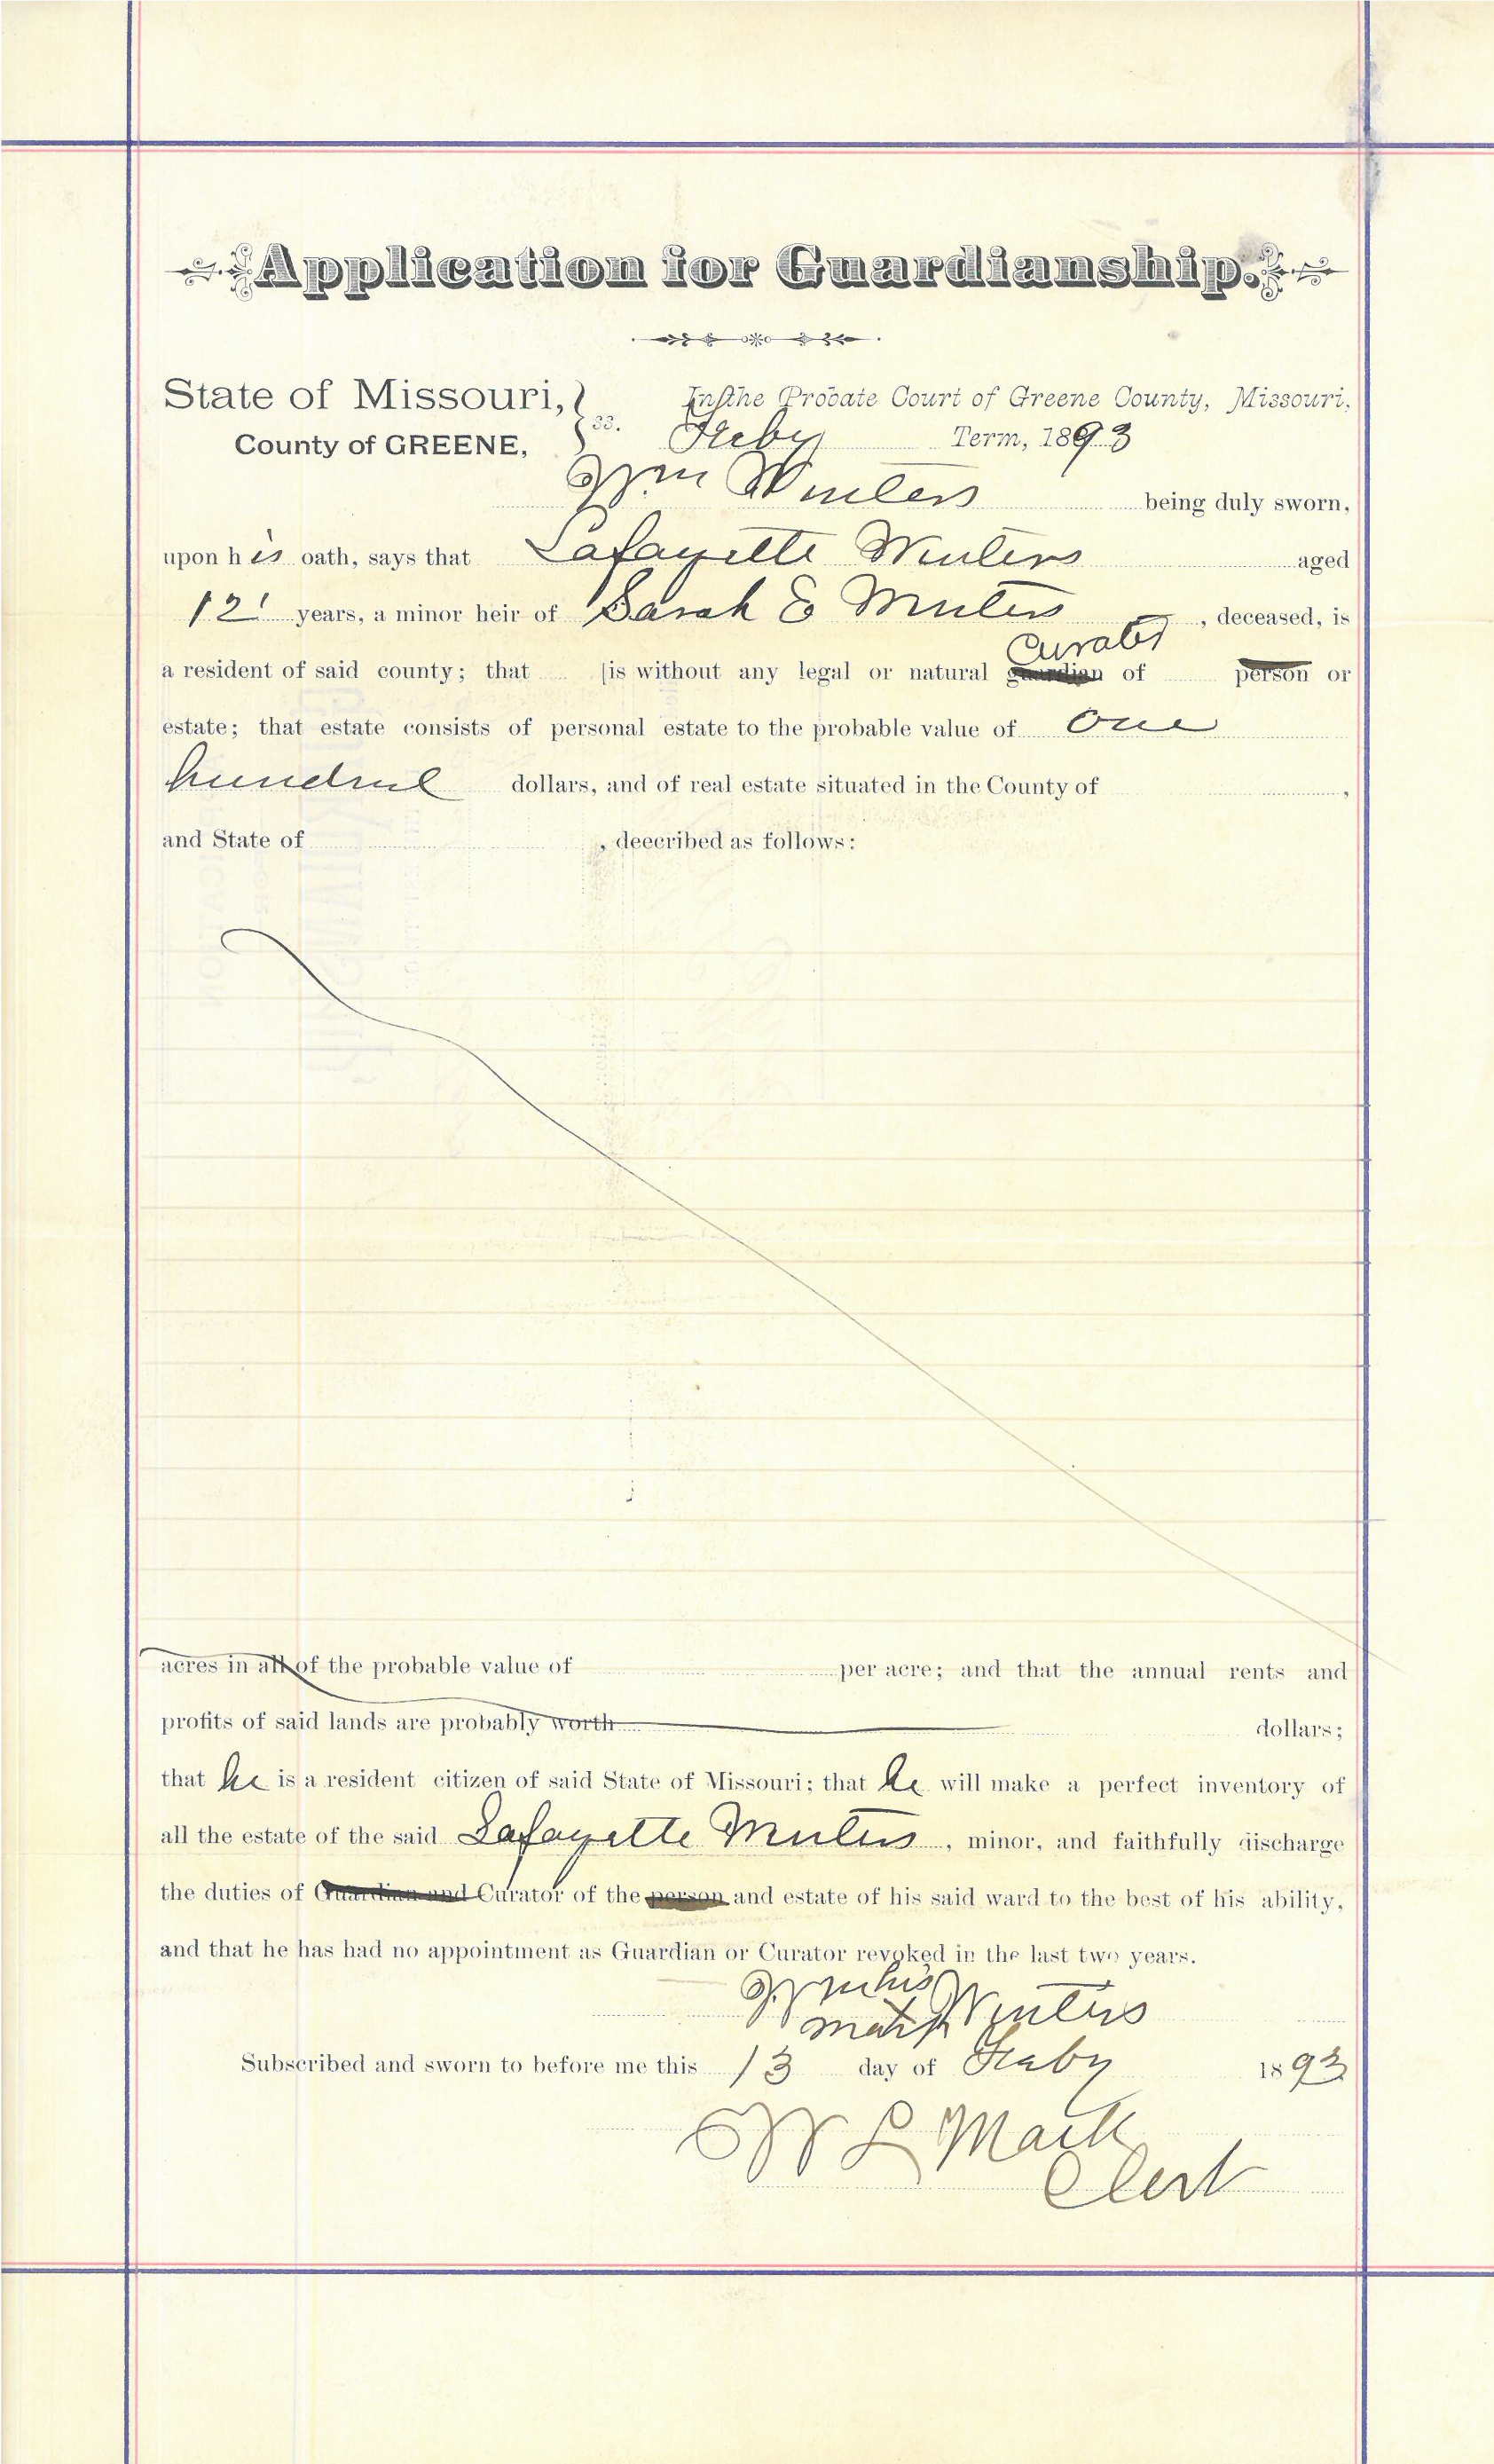 Application for Guardianship.
State of Missouri, } ss. In the Probate Court of Greene County, Missouri,
County of GREENE, Feby Term, 1893
Wm Winters being duly sworn,
upon his oath, says that Lafayette Winters aged
12 years, a minor heir of Sarah E Winters, deceased, is
Curator
a resident of said county; that is without any legal or natural guardian of person or
estate; that estate consists of personal estate to the probable value of One
hundred dollars, and of real estate situated in the County of ,
and State of , deecribed as follows:
acres in all of the probable value of per acre; and that the annual rents and
profits of said lands are probably worth dollars;
that he is a resident citizen of said State of Missouri; that he will make a perfect inventory of
all the estate of the said Lafayette Winters, minor, and faithfully discharge
the duties of Guardian and Curator of the person and estate of his said ward to the best of his ability,
and that he has had no appointment as Guardian or Curator revoked in the last two years.
Wm his Winters
mark
Subscribed and sworn to before me this 13 day of Feby 1893
W L Mack
Clerk